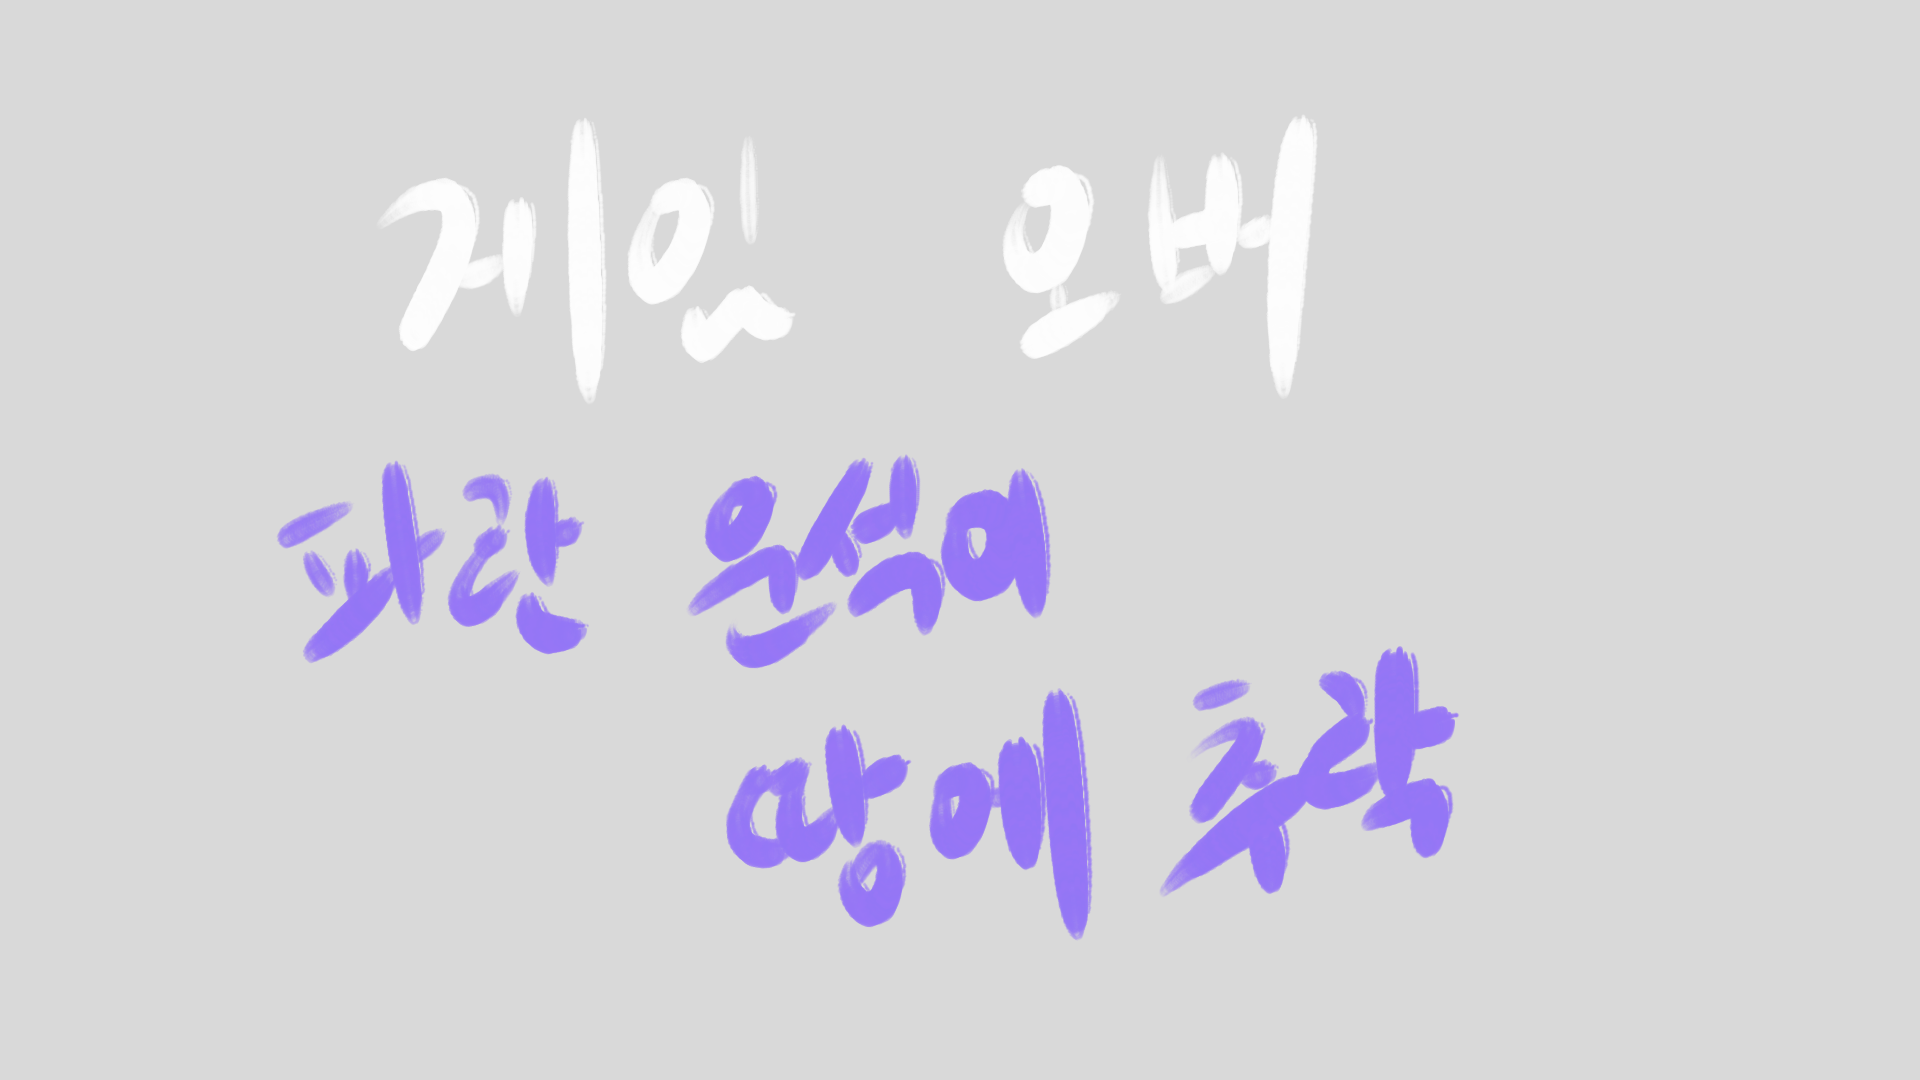 게임 오버
파란 운석이
땅에 추락